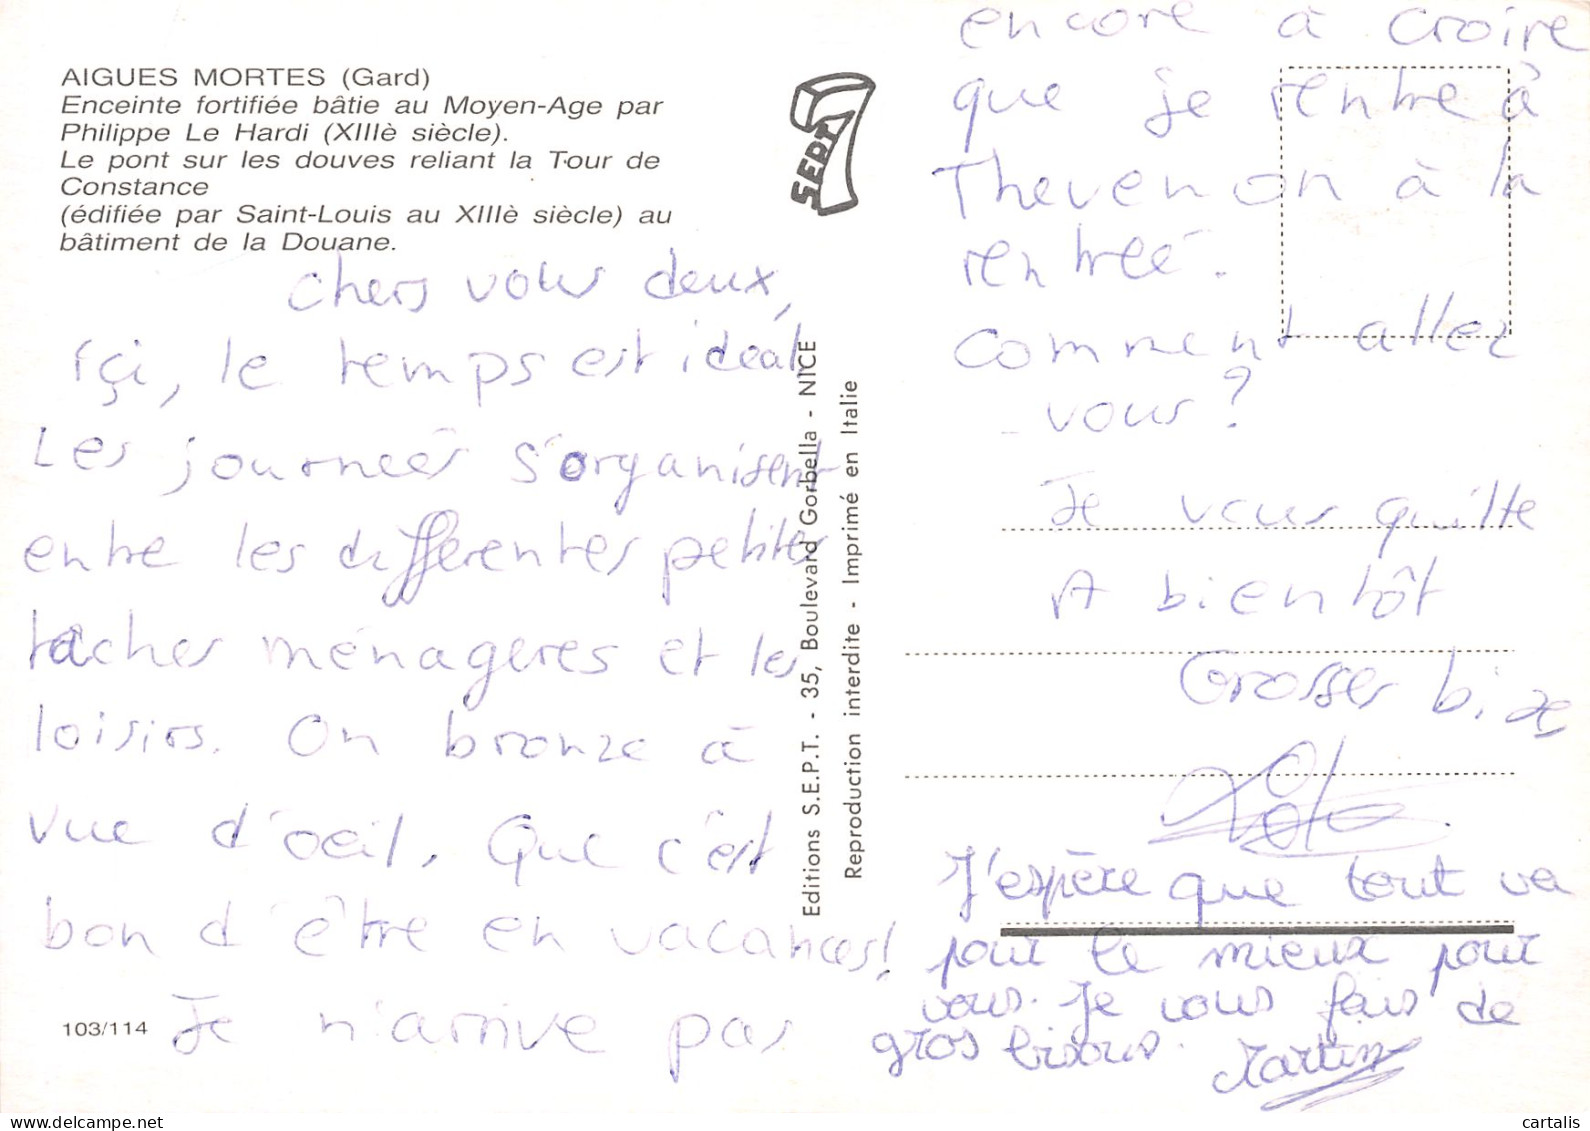 AIGUES MORTES (Gard)
Enceinte fortifiée bâtie au Moyen-Age par
Philippe Le Hardi (XIIIè siècle).
Le pont sur les douves reliant la Tour de
Constance
(édifiée par Saint-Louis au XIIIè siècle) au
bâtiment de la Douane.
chers vous deux,
içi, le temps est idéal.
Les journeés s'organisent
entre les différentes petites
tâches ménagères et les
loisirs. On bronze à
vue d'oeil. Que c'est
bon d'être en vacances!
Je n'arrive pas
103/114
S.E.P.T.
7
Editions S.E.P.T. - 35, Boulevard Gorbella - NICE
Reproduction interdite - Imprimé en Italie
encore à croire
que je rentre à
Thevenon à la
rentreé.
comment allez
vous?
Je vous quitte
A bientôt
Grosses bises
J'espère que tout va
pour le mieux pour
vous. Je vous fais de
gros bisous. Martin
cartalis